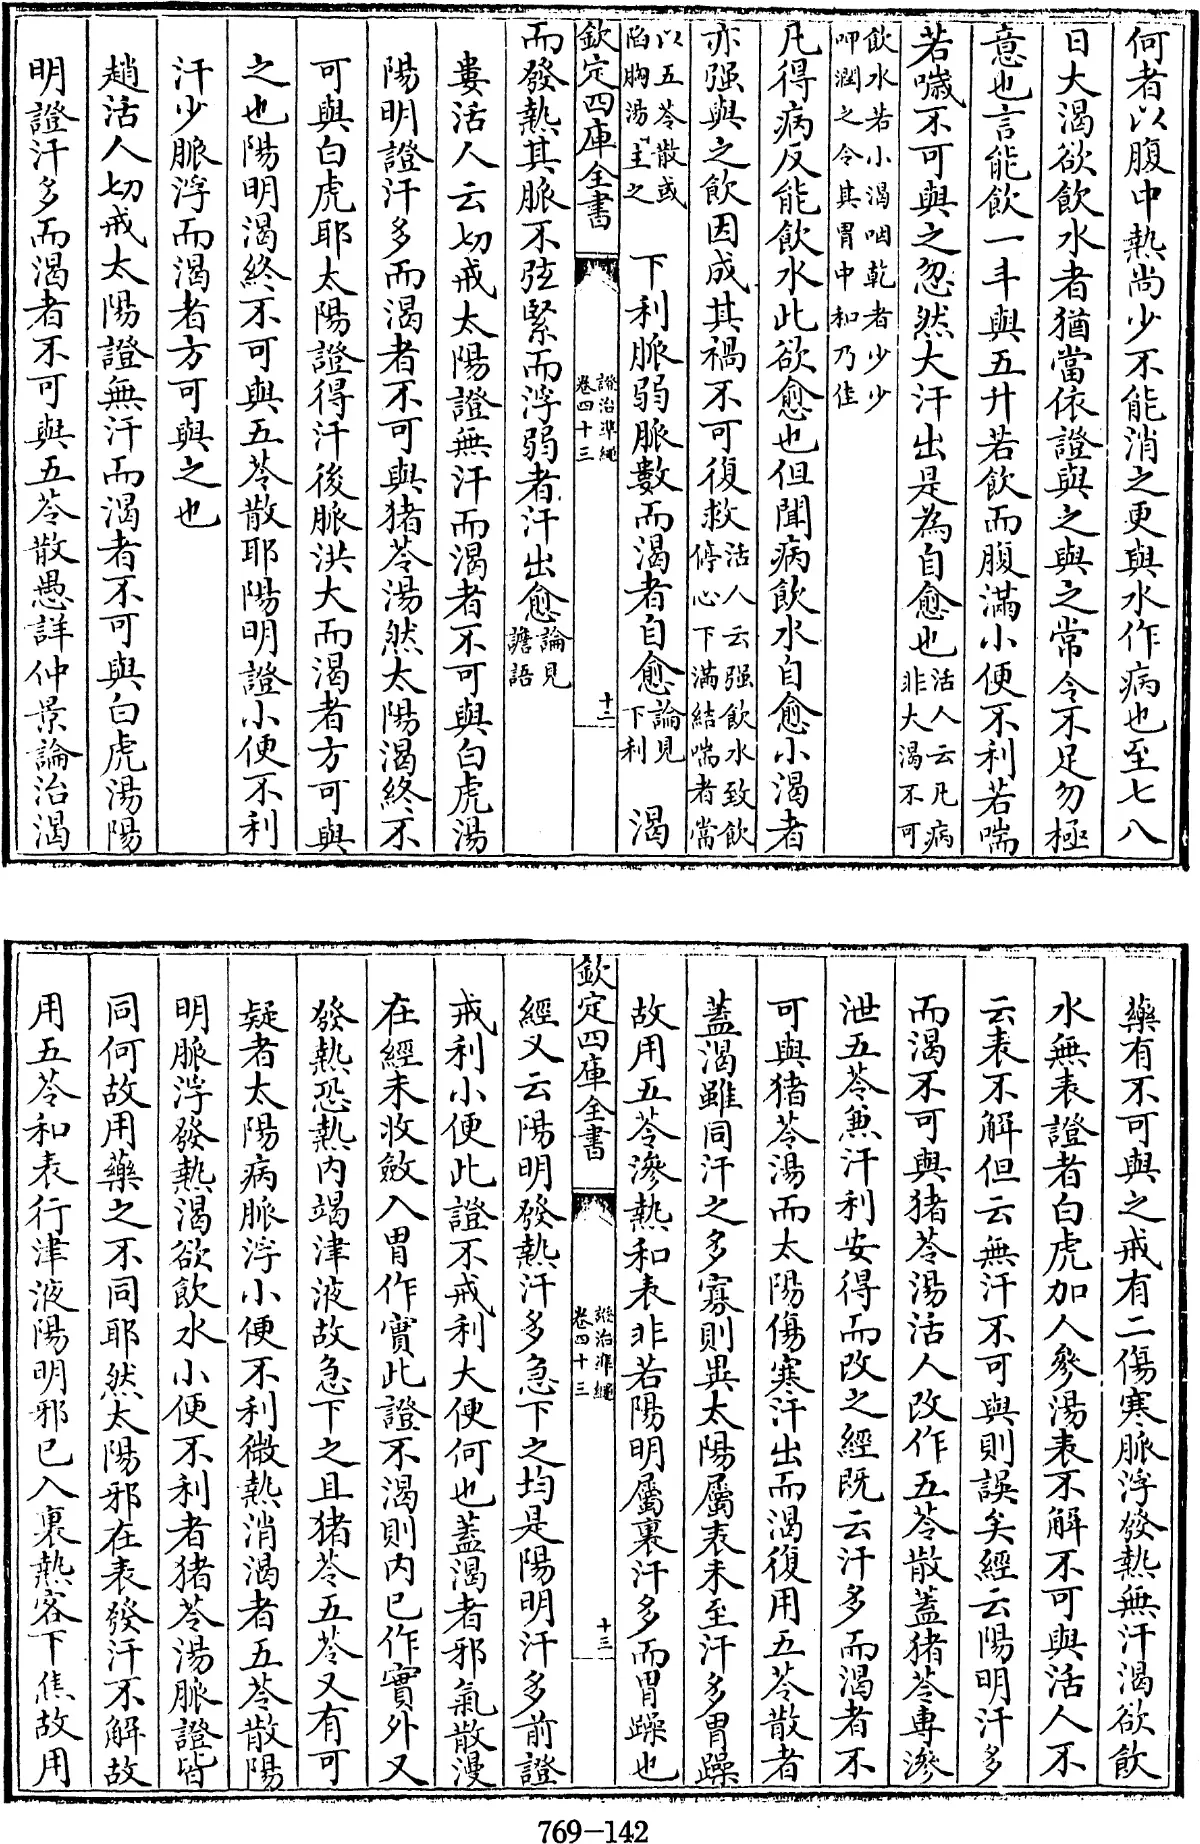 何者以腹中熱尚少不能消之更與水作病也至七八
日大渴欲飲水者猶當依證與之與之常令不足勿極
意也言能飲一斗與五升若飲而腹滿小便不利若喘
若噦不可與之忽然大汗出是為自愈也活人云凡病非大渴不可
飲水若小渴咽乾者少少呷潤之令其胃中和乃佳
凡得病反能飲水此欲愈也但聞病飲水自愈小渴者
亦强與之飲因成其禍不可復救活人云强飲水致飲停心下滿結喘者當
以五苓散或陷胸湯主之 下利脈弱脈數而渴者自愈論見下利 渴
欽定四庫全書 證治準繩卷四十三 十二
而發熱其脈不弦緊而浮弱者汗出愈論見譫語
婁活人云切戒太陽證無汗而渴者不可與白虎湯
陽明證汗多而渴者不可與猪苓湯然太陽渴終不
可與白虎耶太陽證得汗後脈洪大而渴者方可與
之也陽明渴終不可與五苓散耶陽明證小便不利
汗少脈浮而渴者方可與之也
趙活人切戒太陽證無汗而渴者不可與白虎湯陽
明證汗多而渴者不可與五苓散愚詳仲景論治渴
藥有不可與之戒有二傷寒脈浮發熱無汗渴欲飲
水無表證者白虎加人參湯表不解不可與活人不
云表不解但云無汗不可與則誤矣經云陽明汗多
而渴不可與猪苓湯活人改作五苓散蓋猪苓專滲
泄五苓兼汗利安得而改之經既云汗多而渴者不
可與猪苓湯而太陽傷寒汗出而渴復用五苓散者
蓋渴雖同汗之多寡則異太陽屬表未至汗多胃躁
故用五苓滲熱和表非若陽明屬裏汗多而胃躁也
欽定四庫全書 證治準繩卷四十三 十三
經又云陽明發熱汗多急下之均是陽明汗多前證
戒利小便此證不戒利大便何也蓋渴者邪氣散漫
在經未收斂入胃作實此證不渴則内已作實外又
發熱恐熱内竭津液故急下之且猪苓五苓又有可
疑者太陽病脈浮小便不利微熱消渴者五苓散陽
明脈浮發熱渴欲飲水小便不利者猪苓湯脈證皆
同何故用藥之不同耶然太陽邪在表發汗不解故
用五苓和表行津液陽明邪已入裏熱客下焦故用
769-142